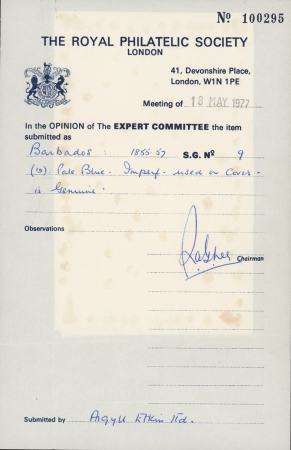 Nº 100295
THE ROYAL PHILATELIC SOCIETY
LONDON
41, Devonshire Place,
London, W1N 1PE
Meeting of 18 MAY 1977
In the OPINION of The EXPERT COMMITTEE the item
submitted as
Barbados: 1855-57 S.G. Nº 9
(1d) Pale Blue. Imperf. used on Cover.
is Genuine.
Observations
Chairman
Submitted by Argyll Etkin Ltd.